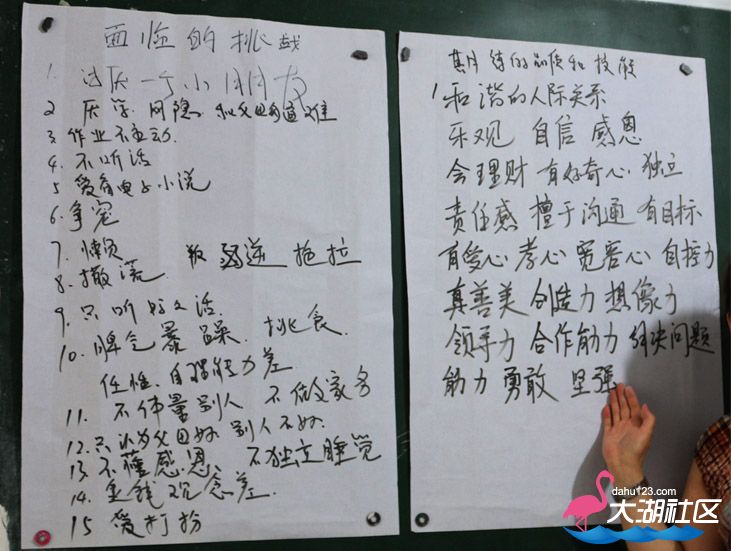 面临的挑战
1. 过庆一个小朋友
2 厌学 网隐 和父母沟通难
3 作业不主动.
4. 不听话
5 爱看电子小说
6. 争宠
7. 懒
叛弱逆 拖拉
8. 撒流
9. 只听好话.
10. 脾气暴躁、挑食、
任性、自理能力差
11. 不体量别人 不做家务
12. 只认为父母好 别人不好.
13 不懂感恩、 不独立睡觉
14. 金钱观念差.
15 爱打扮
期待的品质和技能
1 和谐的人际关系
乐观 自信 感恩
会理财 有好奇心 独立
责任感 擅于沟通 有目标
有爱心 孝心 宽容心 自控力
真善美 创造力 想像力
领导力 合作能力 解决问题
能力 勇敢 坚强
dahu123.com
大湖社区